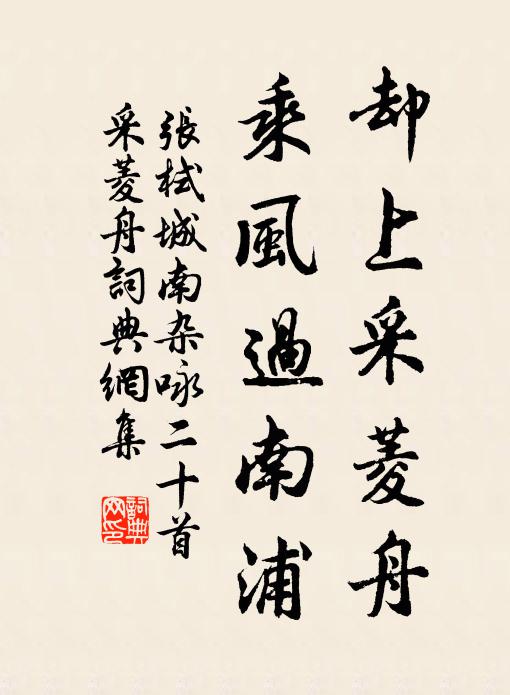 却上采菱舟
乘風過南浦
張栻城南杂咏二十首
采菱舟詞典網集
詞典網印